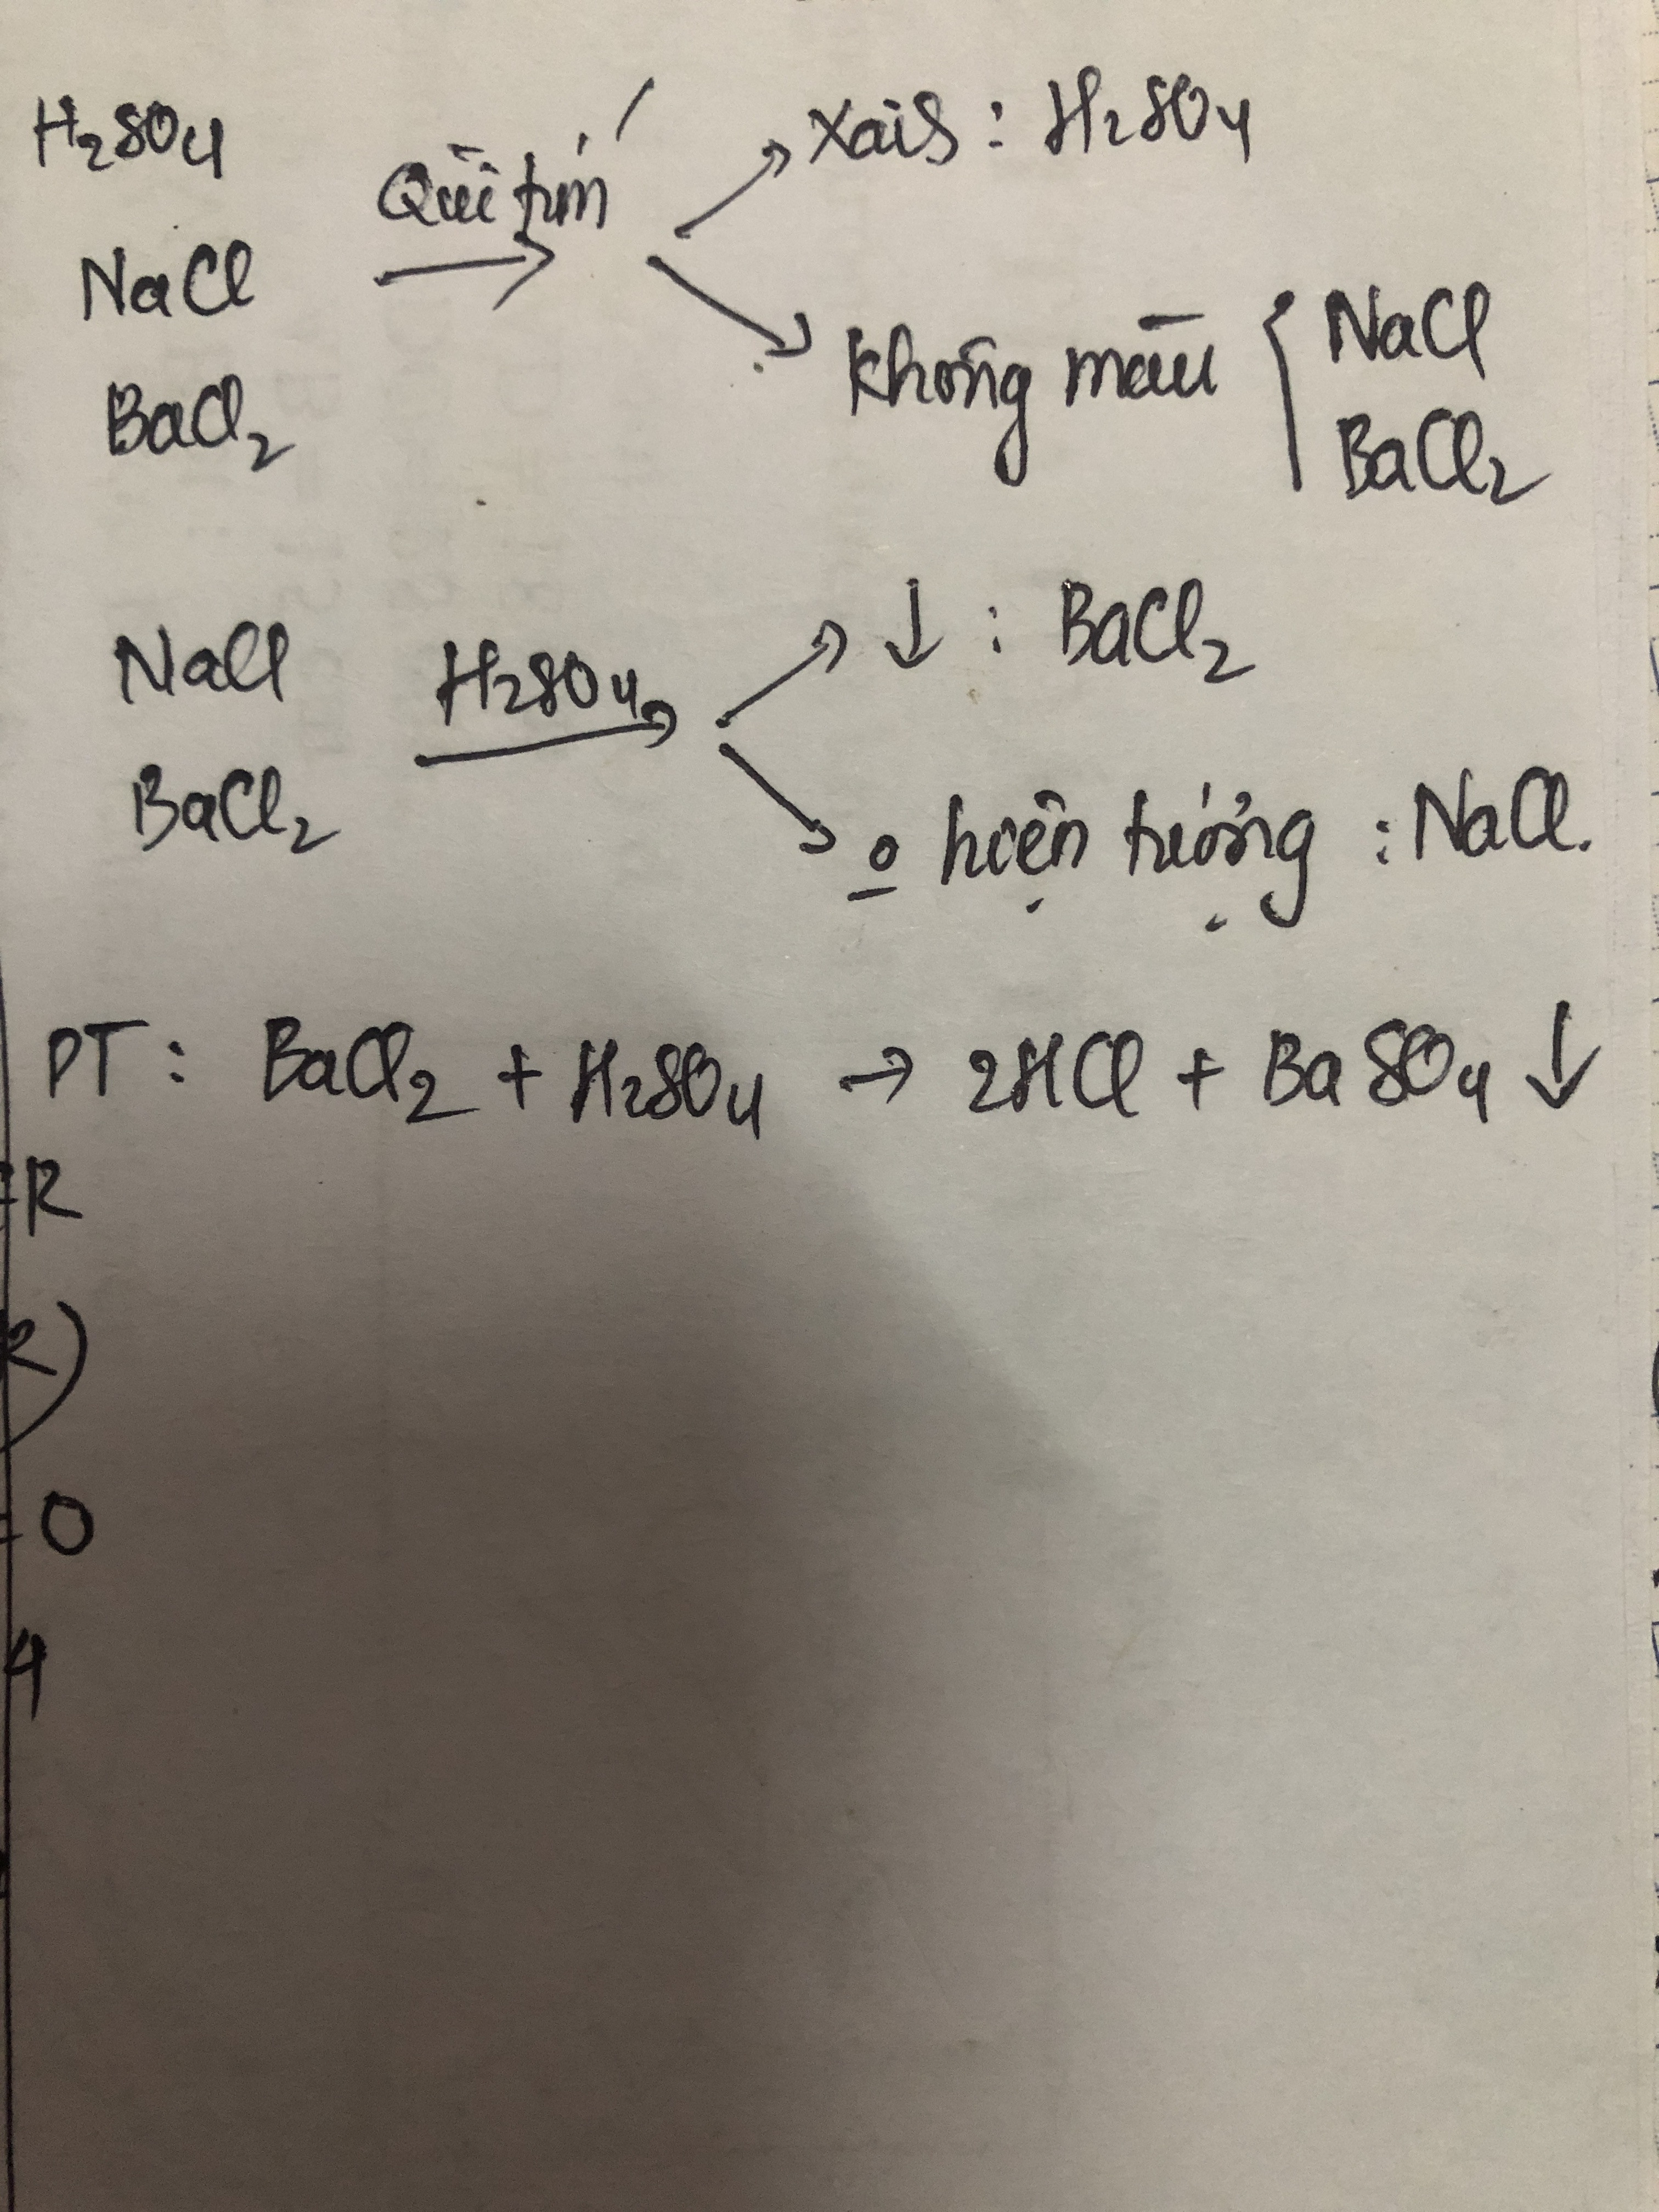 H₂SO₄
NaCl
BaCl₂
Quì tím
Xais : H₂SO₄
không màu { NaCl
BaCl₂
NaCl
BaCl₂
H₂SO₄
↓ : BaCl₂
o hiện tượng : NaCl.
PT : BaCl₂ + H₂SO₄ → 2HCl + BaSO₄ ↓
=R
R)
=0
4